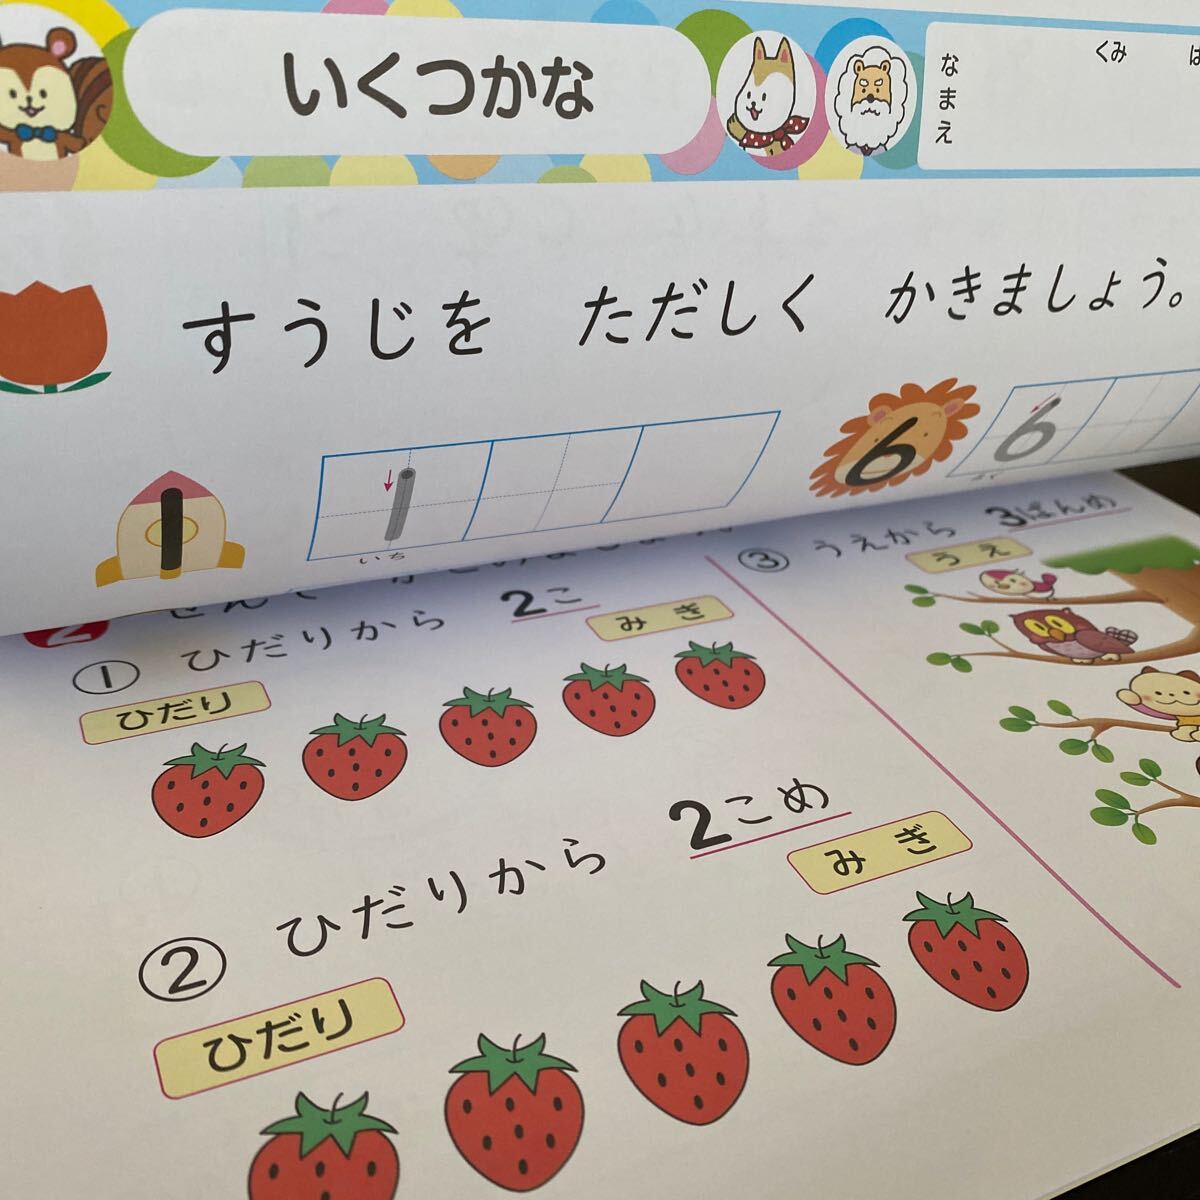 いくつかな
なまえ
くみ
すうじを ただしく かきましょう。
1
1
いち
6
6
2
① ひだりから 2こ
みぎ
ひだり
② ひだりから 2こめ
みぎ
ひだり
③ うえから 3ばんめ
うえ